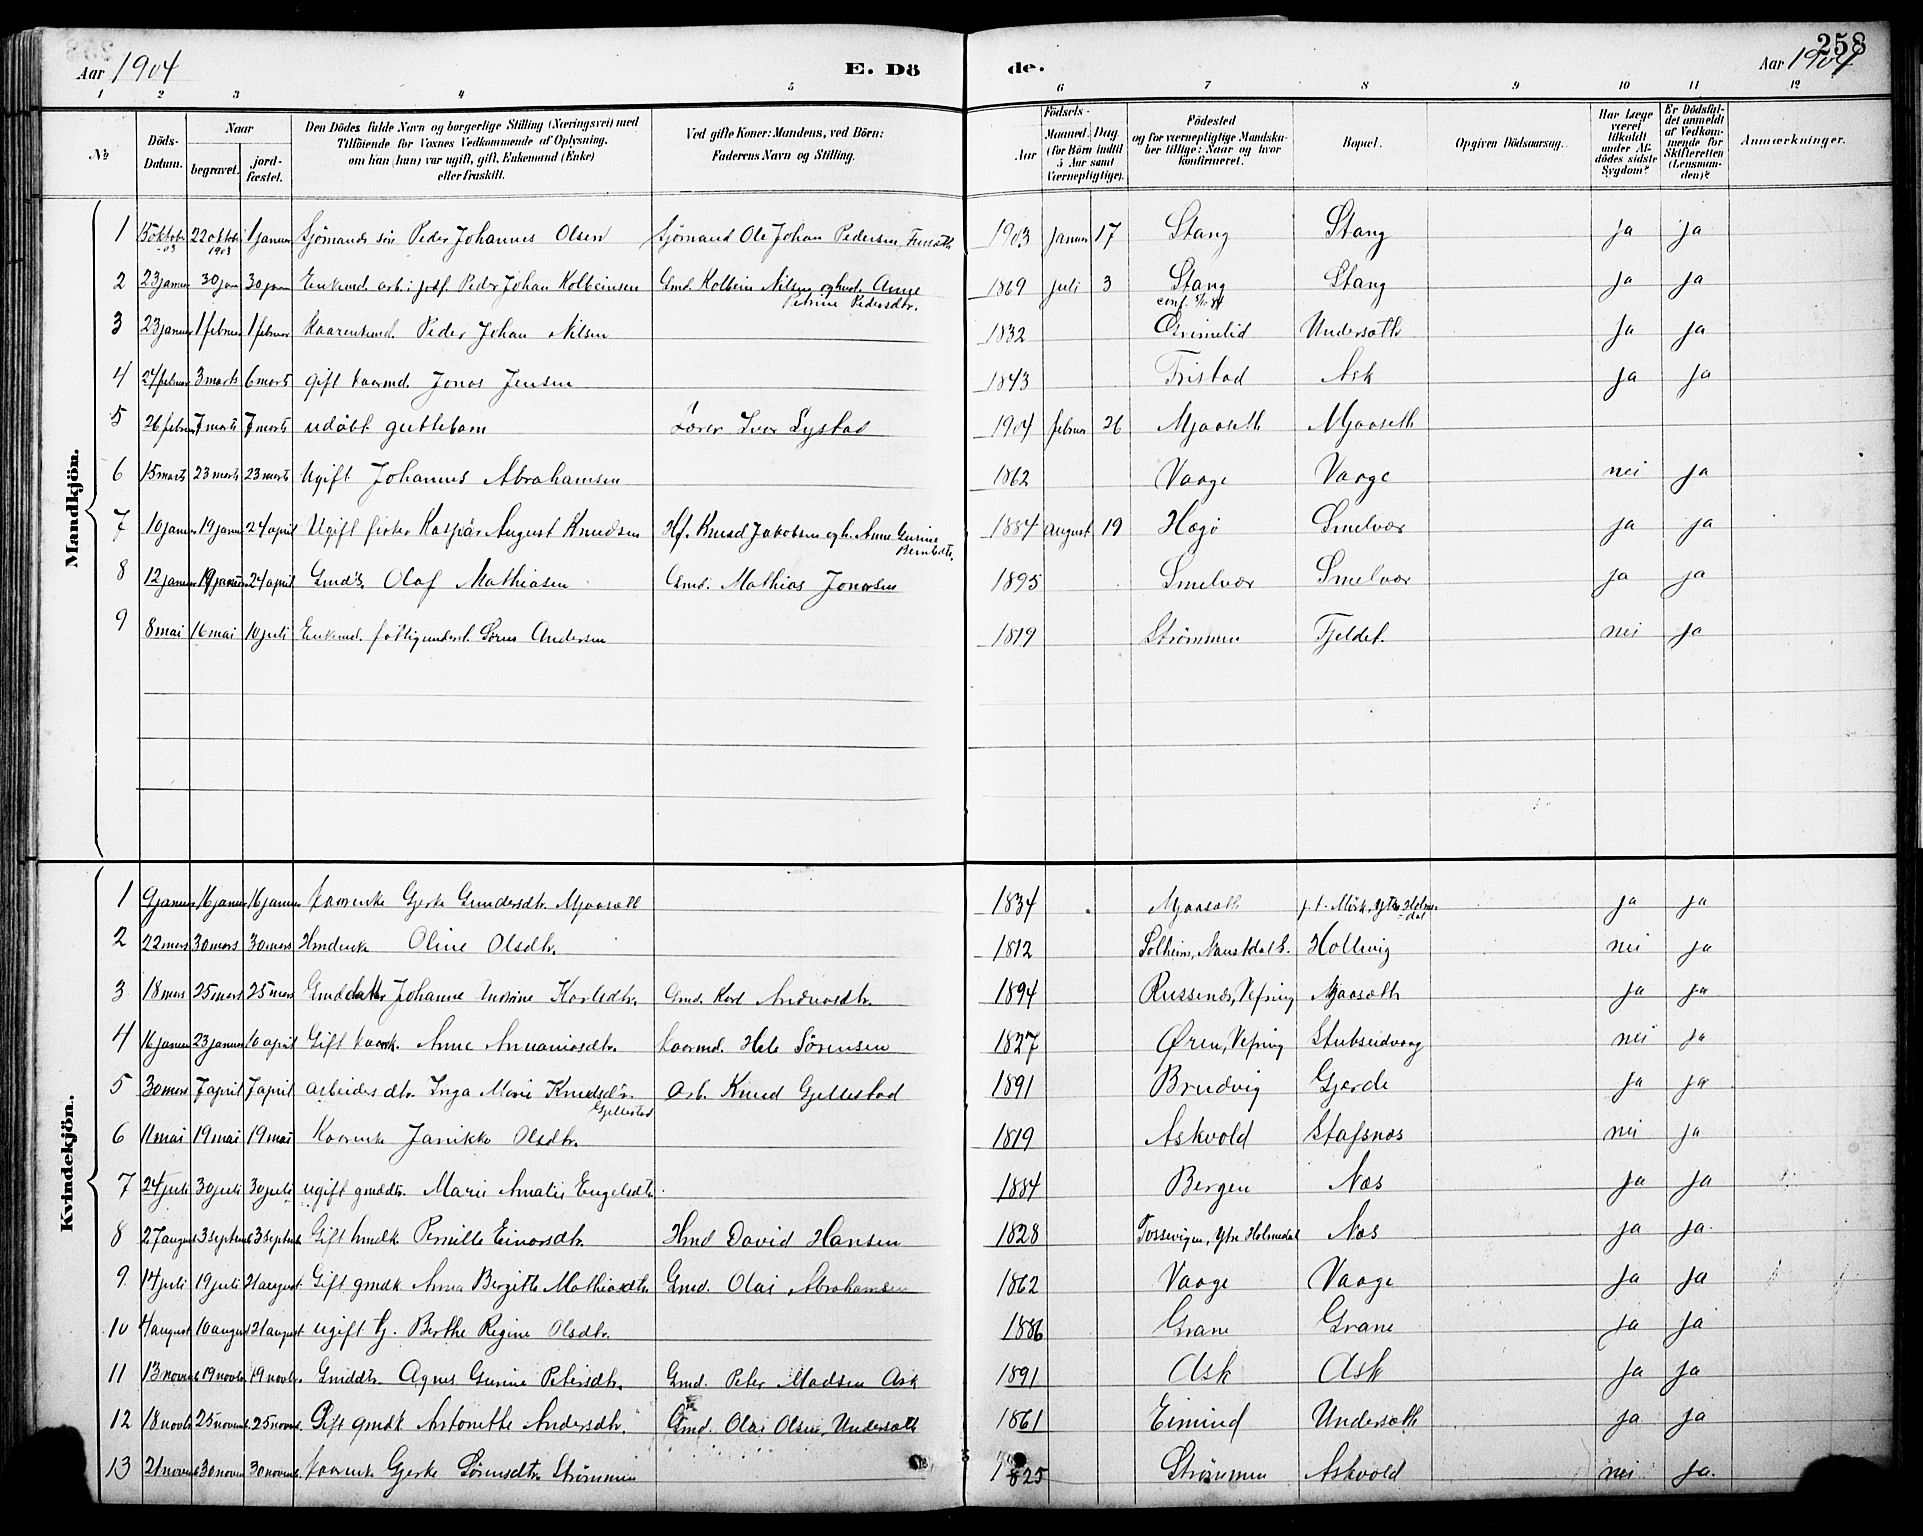 Aar 1904
E. Dö
de.
258
Aar 1904
1 2 3 4 5 6 7 8 9 10 11 12
№
Döds-Datum.
Naar
begravet.
jord-fæstet.
Den Dödes fulde Navn og borgerlige Stilling (Næringsvei) med
Tilföiende for Voxnes Vedkommende af Oplysning,
om han (hun) var ugift, gift, Enkemand (Enke)
eller fraskilt.
Ved gifte Koner: Mandens, ved Börn:
Faderens Navn og Stilling.
Födsels-
Aar
Maaned. Dag
(for Börn indtil
5 Aar samt
Værnepligtige).
Födested
og for værnepligtige Mandska-
ber tillige: Naar og hvor
konfirmeret.
Bopæl.
Opgiven Dödsaarsag.
Har Læge
været
tilkaldt
under Af-
dödes sidste
Sygdom?
Er Dödsfal-
det anmeldt
af Vedkom-
mende for
Skifteretten
(Lensman-
den)?
Anmærkninger.
Mandkjön.
1 15 oktobr 03 22 oktbr 1903 1 januar Sjömands sön Peder Johannes Olsen Sjömand Ole Johan Pedersen 1903 januar 17 Stang Stang ja ja
2 23 januar 30 jan 30 jan Enkemd. arb. Peder Johan Kolbeinsen Gmd. Kolbein Nilsen og hustr. Anne Petrine Pedersdtr. 1869 juli 3 Stang conf. Stang ja ja
3 23 januar 1 februar 1 februar Kaarenkemd. Peder Johan Nilsen 1832 Grimelid Undersæth ja ja
4 24 februar 3 marts 6 marts gift kaarmd. Jonas Jensen 1843 Tristad Ask ja ja
5 26 februar 7 marts 7 marts udöbt guttebarn Lærer Iver Systad 1904 februar 26 Mjaaseth Mjaaseth
6 15 marts 23 marts 23 marts Ugift Johannes Abrahamsen 1862 Vaage Vaage nei ja
7 10 januar 19 januar 24 april Ugift fisker Kaspar August Knudsen Hf. Knud Jakobsen og h. Anne Gurine Berntsdtr. 1884 august 19 Hægö Smelvær ja ja
8 12 januar 19 januar 24 april Gmds. Olaf Mathiasen Gmd. Mathias Jonassen 1895 Smelvær Smelvær ja ja
9 8 mai 16 mai 10 juli Enkemd. fattigunderst. Sörus Andersen 1819 Strömmen Fjeldet. nei ja
Kvindekjön.
1 9 januar 16 januar 16 januar kaarenke Gjerke Gundersdtr. Mjaasæth 1834 Mjaasæth p. t. Mörk, Ytre Holmedal ja ja
2 22 mars 30 mars 30 mars Hmdenke Oline Olsdtr. 1812 Solheim, Naustdal S. Hellevig nei ja
3 18 mars 25 mars 25 mars Gmddatter Johanne Karlsdtr. Gmd. Karl Andreasdtr. 1894 Russenes, Vefring Mjaasæth ja ja
4 16 januar 23 januar 10 april Gift kaark. Anne Annaniasdtr. kaarmd. Hele Sörensen 1827 Øren, Vefring Stubseidvaag nei ja
5 30 mars 7 april 7 april arbeidersdtr. Inga Marie Knudsdtr. Gjellestad Arb. Knud Gjellestad 1891 Brudvig Gjerde ja ja
6 11 mai 19 mai 19 mai Kaarenke Janikke Olsdtr. 1819 Askvold Stafsnæs nei ja
7 24 juli 30 juli 30 juli ugift gmddtr. Marie Amalie Engelsdtr. 1884 Bergen Næs ja ja
8 27 august 3 septemb 3 septemb Gift hmdk. Pernille Einarsdtr. Hmd David Hansen 1828 Tossevigen, Ytre Holmedal Næs ja ja.
9 14 juli 19 juli 21 august Gift gmdk Anna Bergitte Mathiasdtr. Gmd. Olai Abrahamsen 1862 Vaage Vaage ja ja
10 4 august 10 august 21 august ugift tj. Berthe Regine Olsdtr. 1886 Grane Grane ja ja
11 13 novemb 19 novbr. 19 novbr. Gmddtr. Agnes Gurine Petersdtr. Gmd. Peter Madsen Ask 1891 Ask Ask ja ja
12 18 novbr 25 novemb. 25 novemb. Gift gmdk Antonette Andersdtr. Gmd. Olai Olsen, Undersæth 1861 Eimind Undersæth ja ja
13 21 novemb 30 novemb 30 novemb kaarenke Gjerke Sörensdtr. Strömmen 1825 Strömmen Askvold nei ja.